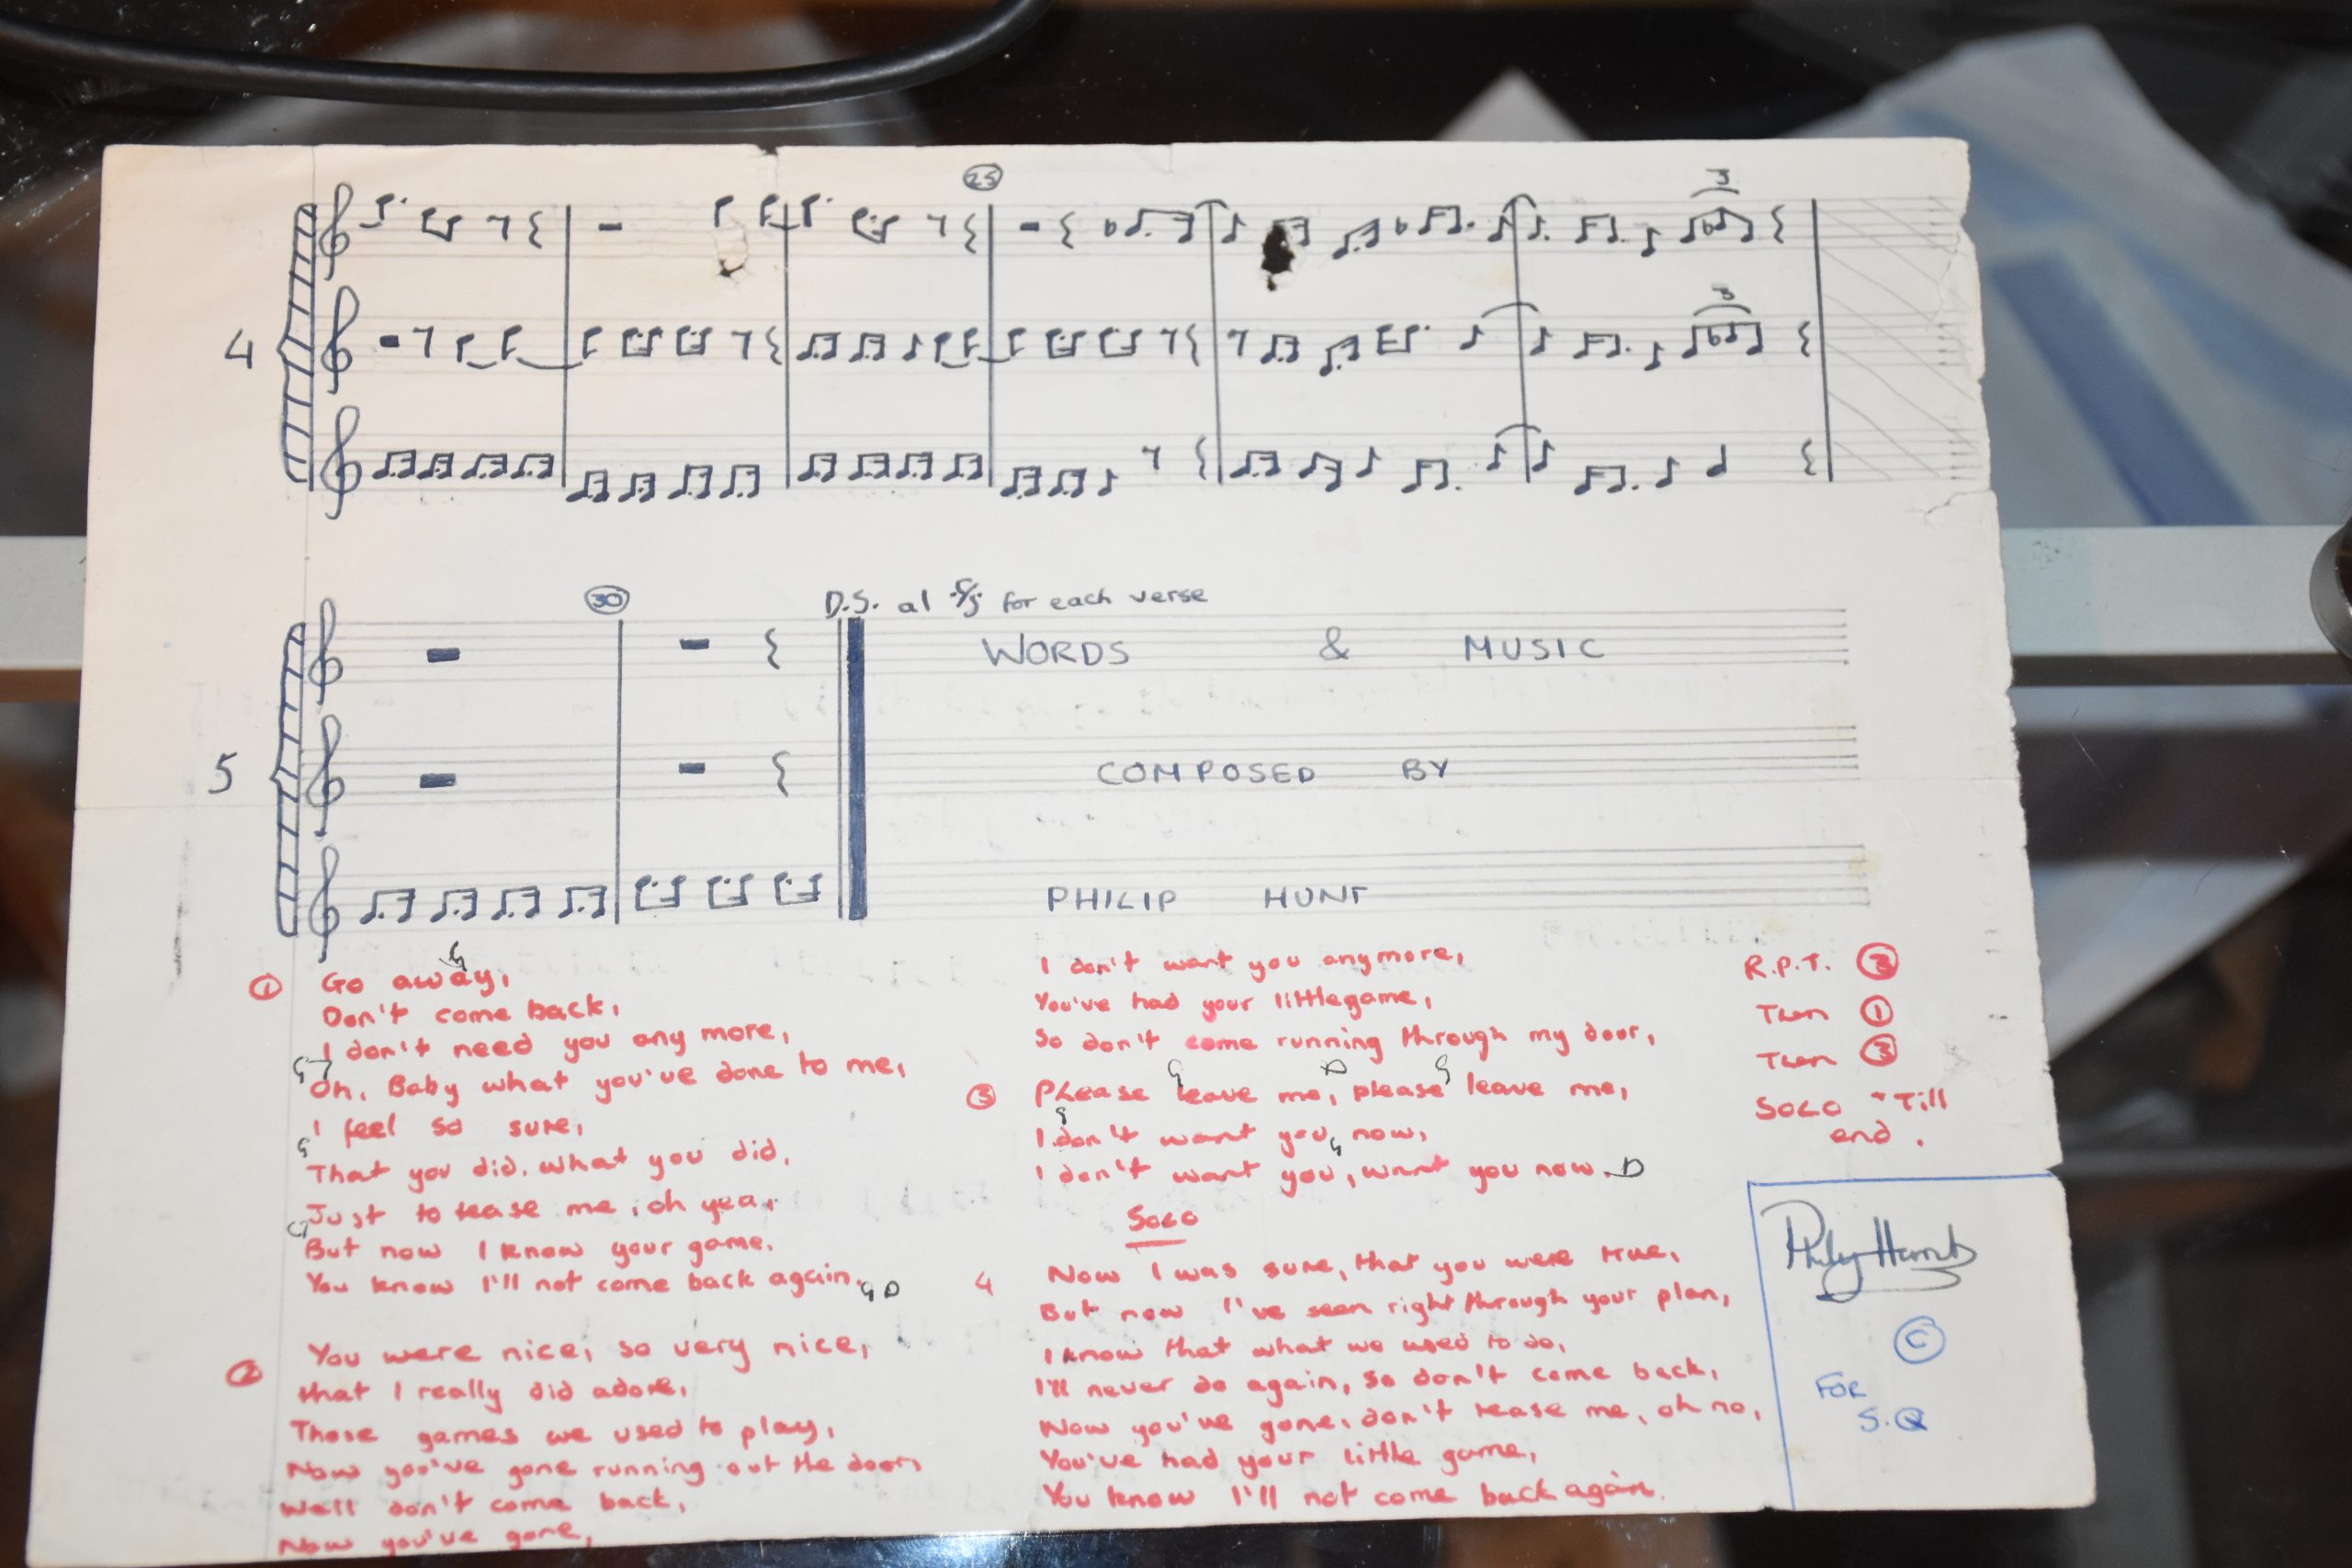 25
3
4
3
30
D.S. al 𝄋 for each verse
5
WORDS & MUSIC
COMPOSED BY
PHILIP HUNT
G
① Go away,
Don't come back,
I don't need you any more,
G7
Oh, Baby what you've done to me,
I feel so sure,
G
That you did. what you did,
Just to tease me, oh yea,
But now I know your game.
You know I'll not come back again. G D
② You were nice, so very nice,
that I really did adore,
Those games we used to play,
Now you've gone running out the door
Well don't come back,
Now you've gone,
I don't want you anymore,
You've had your little game,
So don't come running through my door,
G D G
③ Please leave me, please leave me,
G
I don't want you, now,
G
I don't want you, want you now. D
SOLO
4 Now I was sure, that you were true,
But now I've seen right through your plan,
I know that what we used to do,
I'll never do again, so don't come back,
Now you've gone, don't tease me, oh no,
You've had your little game,
You know I'll not come back again.
R.P.T.
Then ①
Then ③
SOLO Till
end.
©
FOR
S.Q